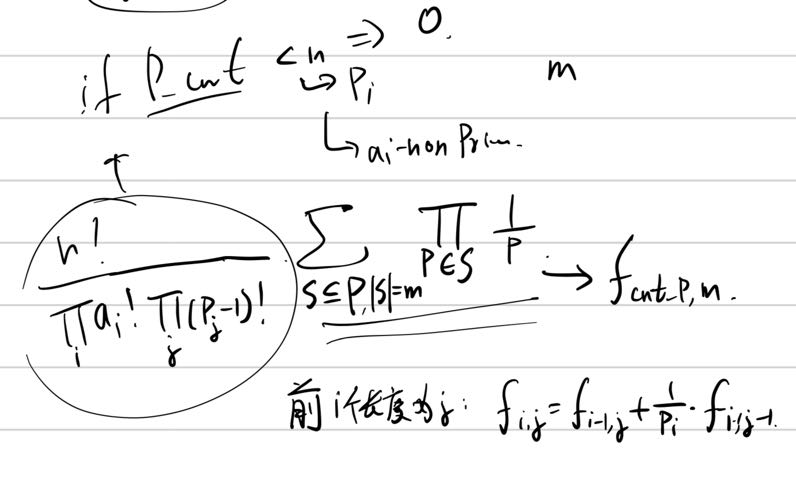 if P_cnt < n ⇒ 0.
↳ Pi m
↳ ai-non Prim.
↑
n! / ∏i ai! ∏j (Pj-1)! ∑S⊆P,|S|=m ∏P∈S 1/P. → fcnt_P,m.
前i个长度为j: fi,j = fi-1,j + 1/Pi · fi-1,j-1.